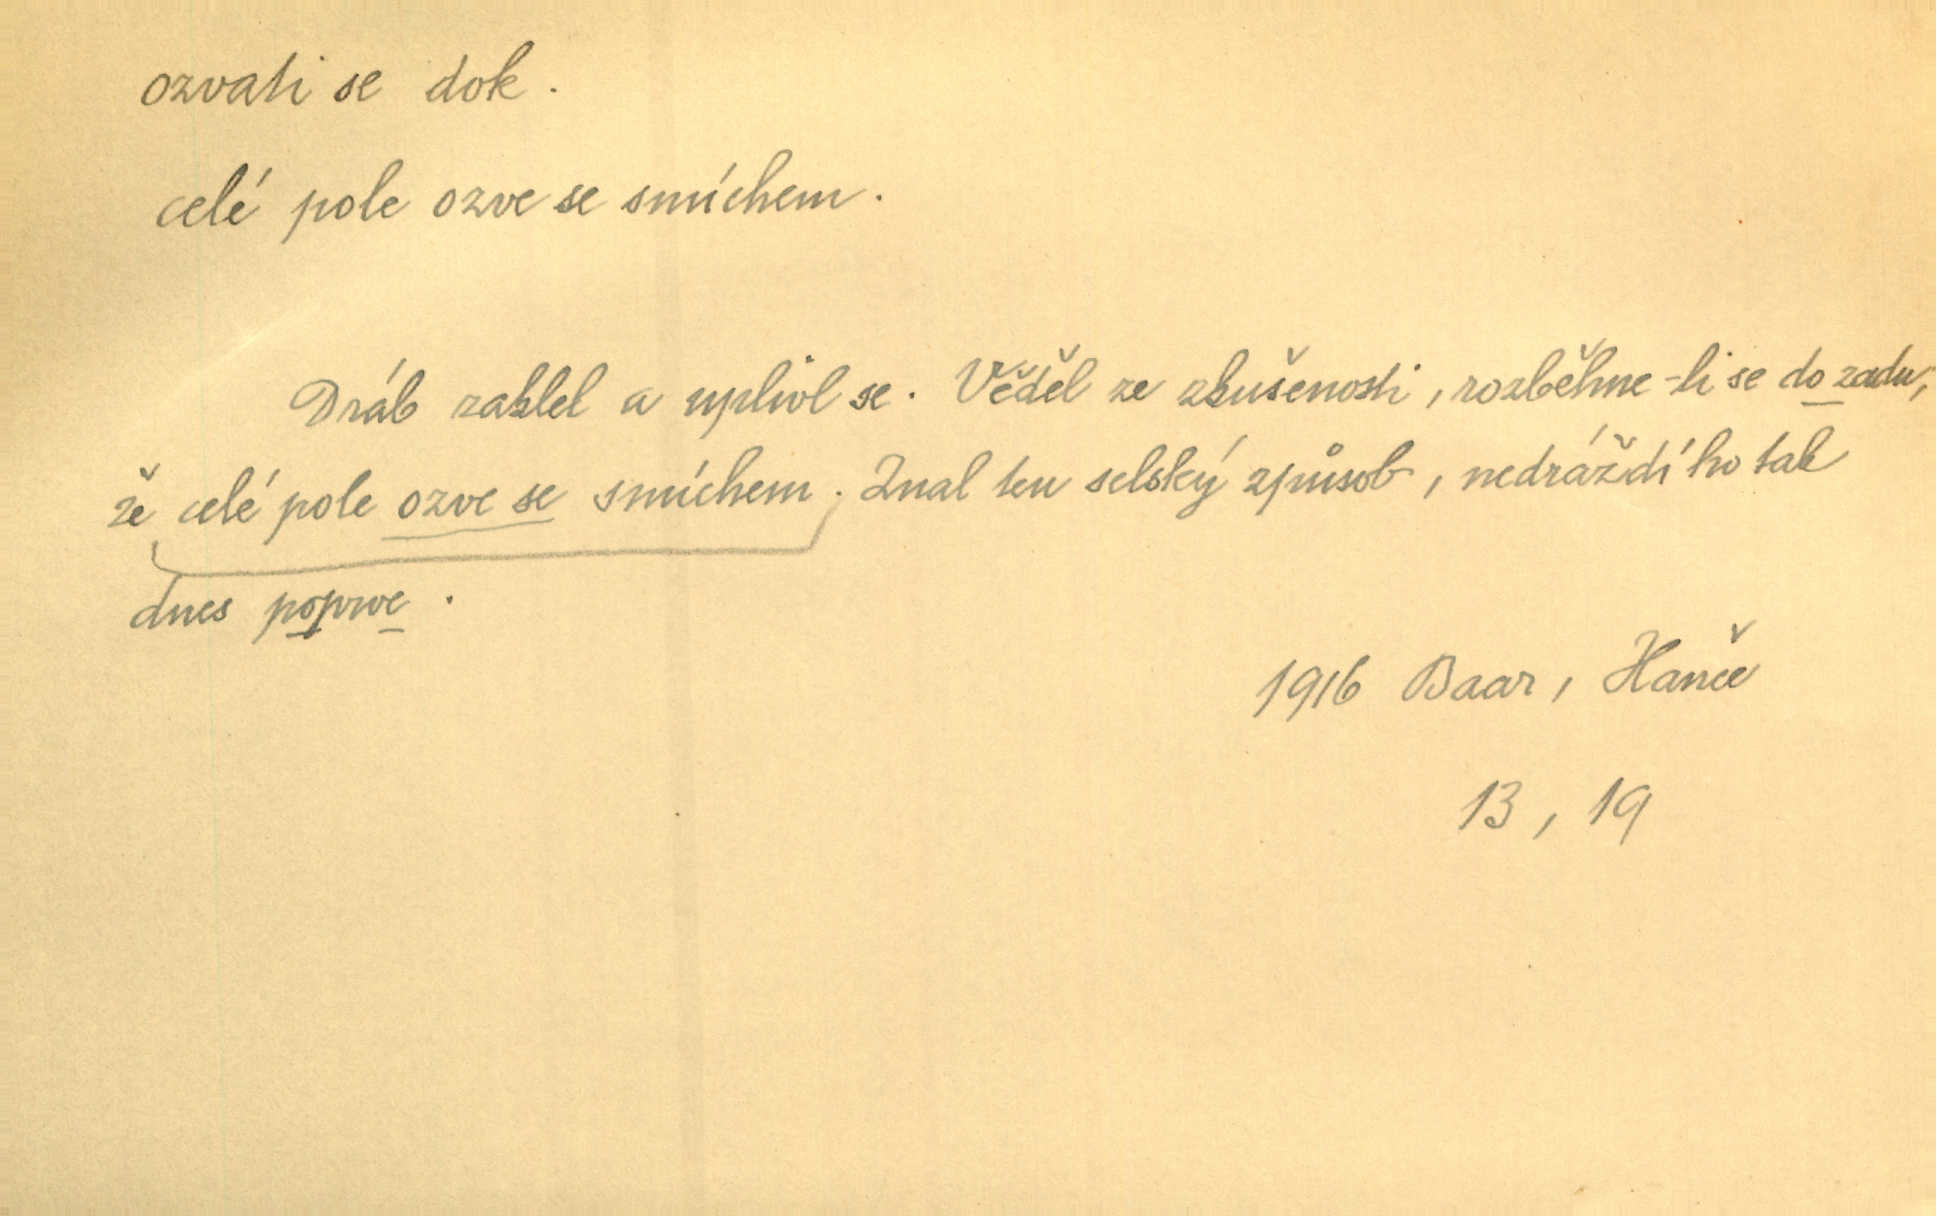 ozvati se dok.
celé pole ozve se smíchem.
Dráb zaklel a uplivl se. Věděl ze zkušenosti, rozběhne-li se do zadu,
že celé pole ozve se smíchem. Znal ten selský způsob, nedráždí ho tak
dnes poprve.
1916 Baar, Hanče
13, 19